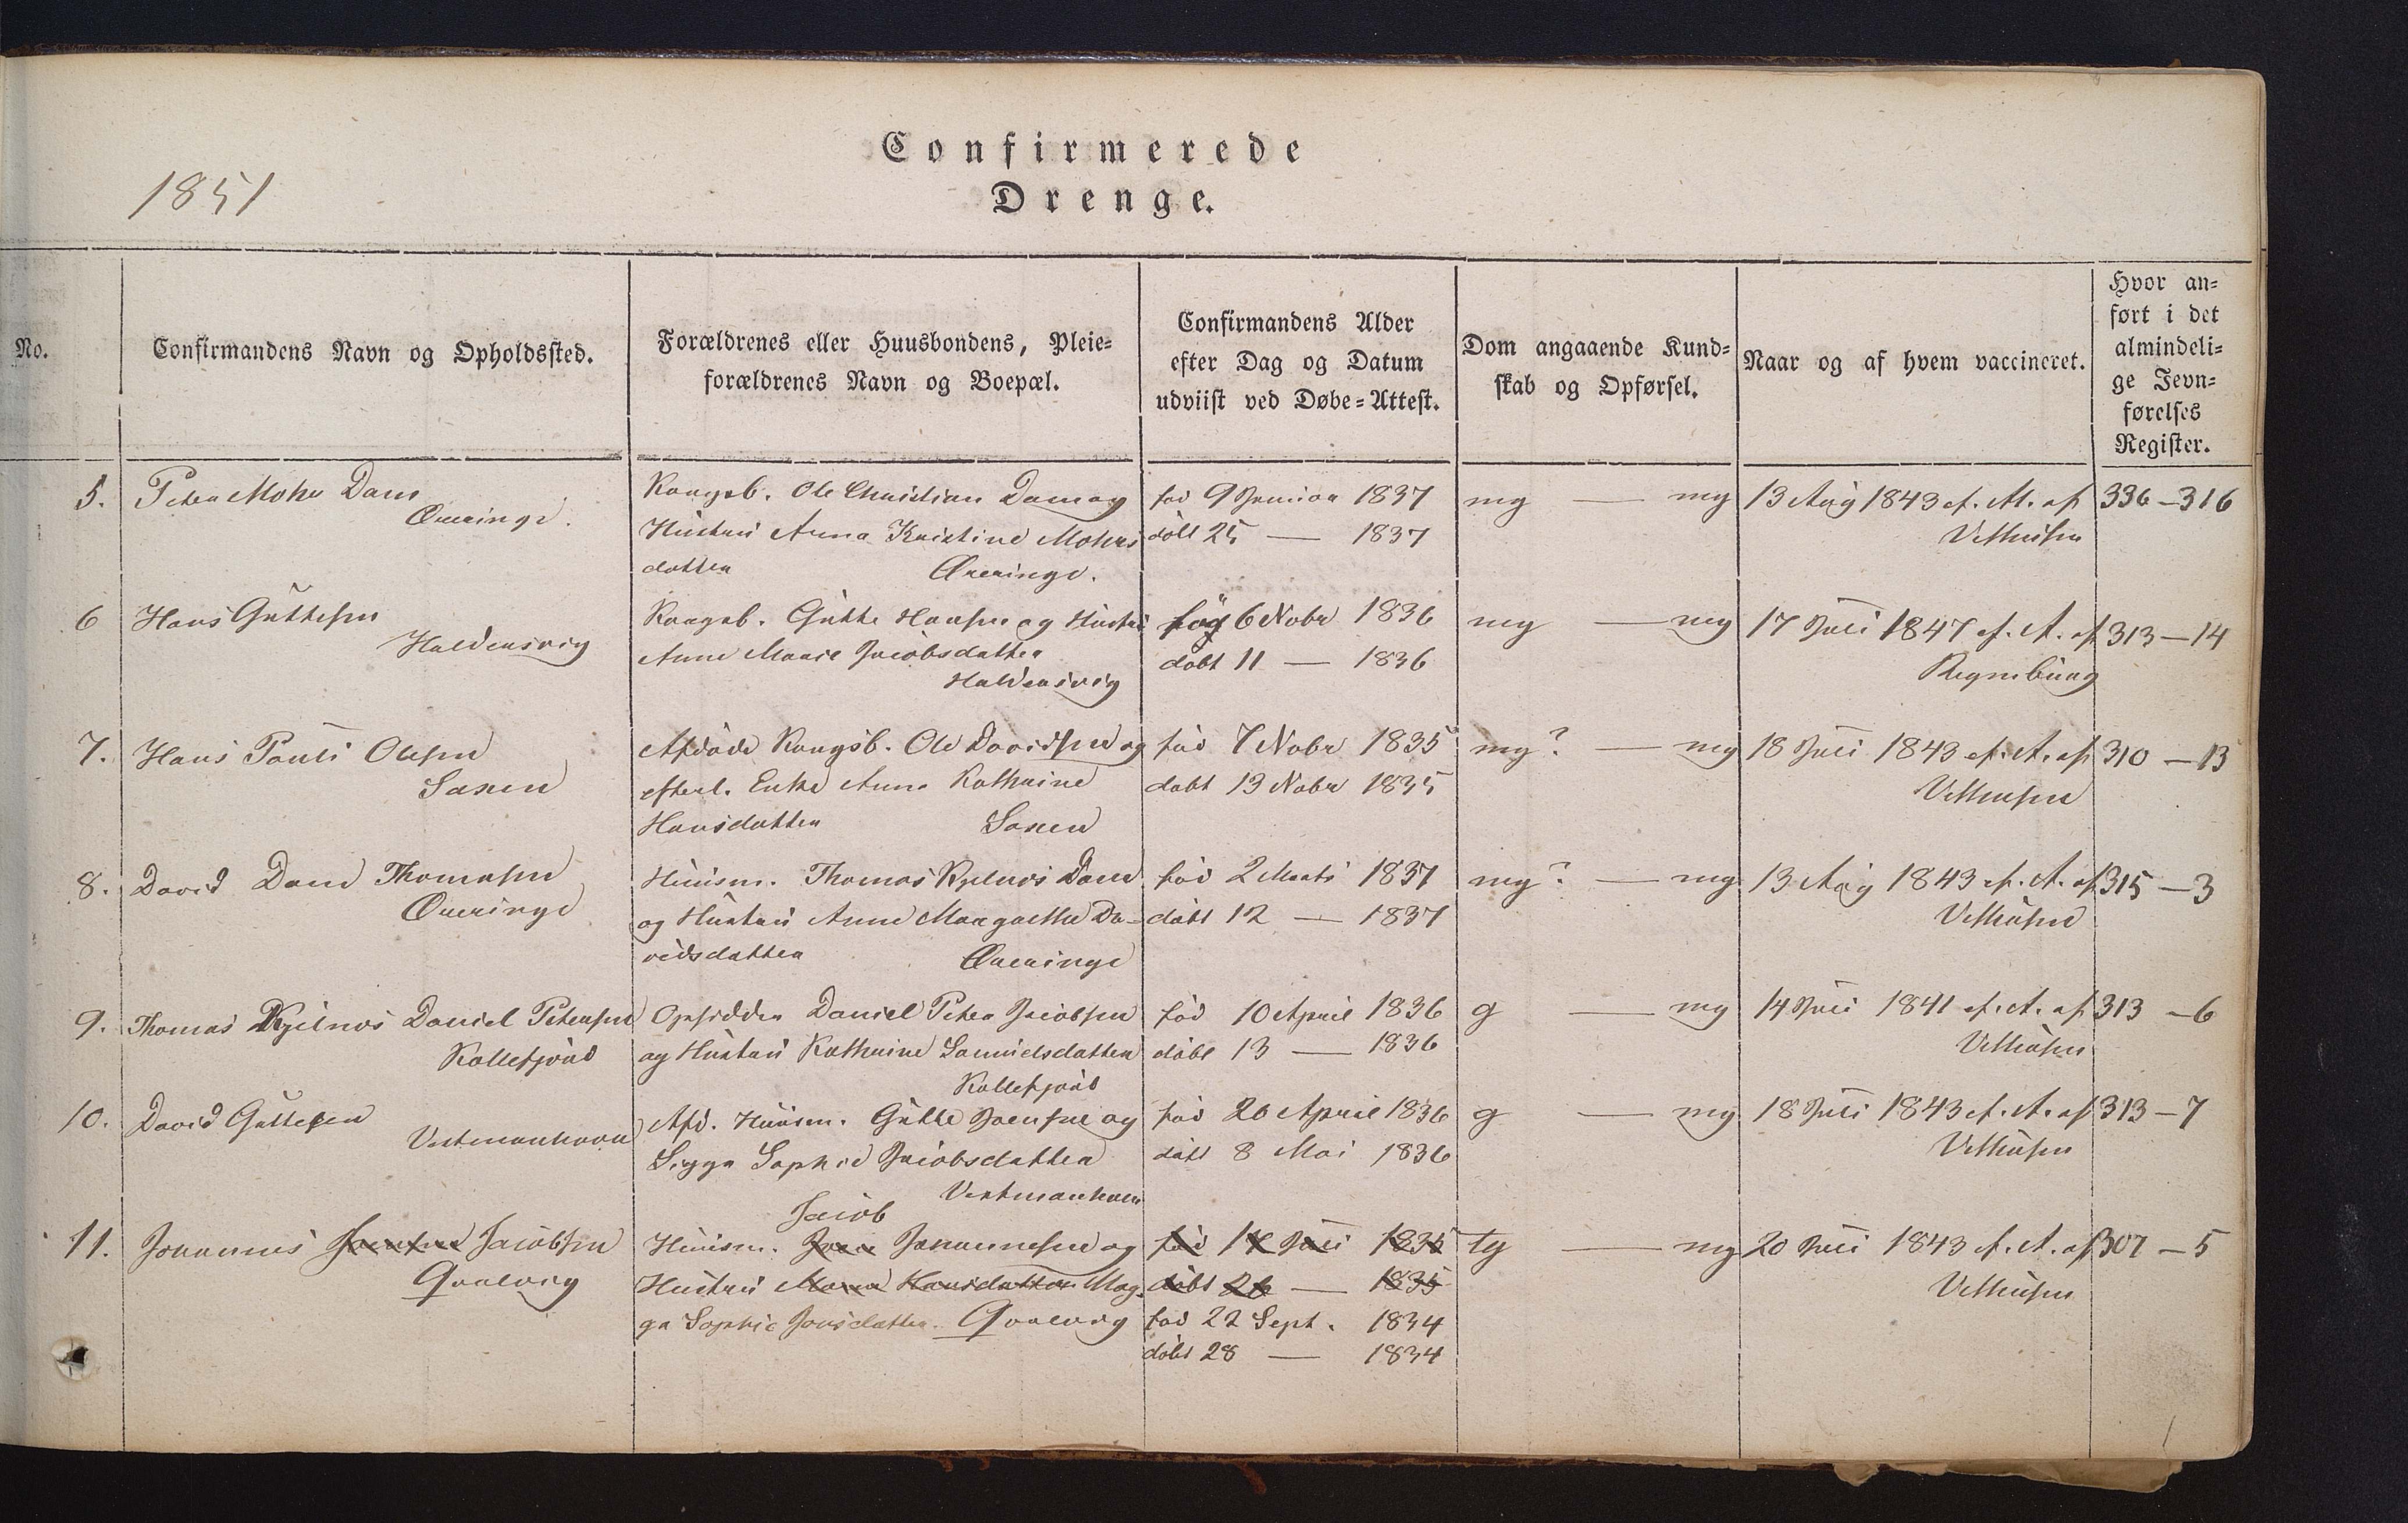 Confirmerede
1851
Drenge.
No.
Confirmandens Navn og Opholdssted.
Forældrenes eller Huusbondens, Pleie=
forældrenes Navn og Boepæl.
Confirmandens Alder
efter Dag og Datum
udviist ved Døbe=Attest.
Dom angaaende Kund=
skab og Opførsel.
Naar og af hvem vaccineret.
Hvor an=
ført i det
almindeli=
ge Jevn=
førelses
Register.
5.
Peter Mohr Dam
Qveeringe.
Kongsb. Ole Christian Dam og
Hustru Anna Kristine Mohrs
datter Qveeringe.
fød 9 Januar 1837
døbt 25 — 1837
mg — mg
13 Aug 1843 ef. At. af
Velthusen
336 — 316
6
Hans Guttesen
Haldensvig
Kongsb. Gutte Hansen og Hustru
Anne Marie Jacobsdatter
Haldensvig
fød 6 Nobr 1836
døbt 11 — 1836
mg — mg
17 Juli 1847 ef. A. af
Regenburg
313 — 14
7.
Hans Pauli Olesen
Saxen
Afdøde Kongsb. Ole Davidsen og
efterl. Enke Anne Kathrine
Hansdatter Saxen
fød 7 Nobr 1835
døbt 13 Nobr 1835
mg? — mg
18 Juli 1843 ef. A. af
Velthusen
310 — 13
8.
David Dam Thomasen
Qveeringe
Huusm. Thomas Kjelnæs Dam
og Hustru Anne Margrethe Da-
vidsdatter Qveeringe
fød 2 Marts 1837
døbt 12 — 1837
mg? — mg
13 Aug 1843 ef. A. af
Velthusen
315 — 3
9.
Thomas Kjelnæs Daniel Petersen
Kollefjord
Opsidder Daniel Peter Jacobsen
og Hustru Kathrine Samuelsdatter
Kollefjord
fød 10 April 1836
døbt 13 — 1836
g — mg
14 Juli 1841 ef. A. af
Velthusen
313 — 6
10.
David Guttesen
Vestmanhavn
Afd. Huusm. Gutte Joensen og
Sigga Sophie Jacobsdatter
Vestmanhavn
fød 26 April 1836
døbt 8 Mai 1836
g — mg
18 Juli 1843 ef. A. af
Velthusen
313 — 7
11.
Johannes Joensen Jacobsen
Qvalvig
Jacob
Huusm. Joen Johannesen og
Hustru Maria Hansdatter Mag-
ga Sophie Joensdatter. Qvalvig
fød 14 Juli 1835
døbt 26 — 1835
fød 22 Sept. 1834
døbt 28 — 1834
tg — mg
20 Juli 1843 ef. A. af
Velthusen
307 — 5